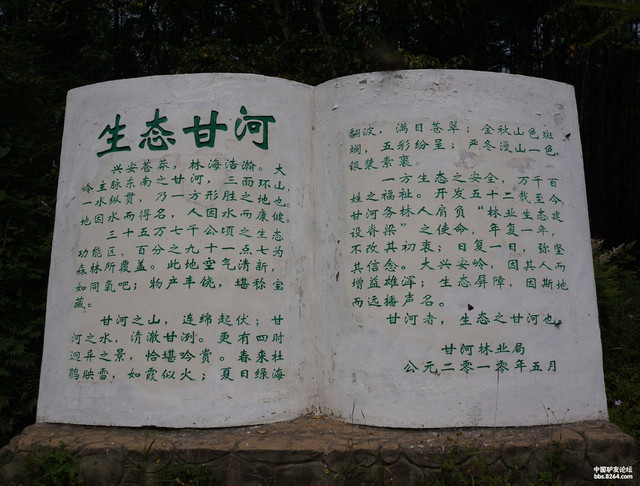 生态甘河
兴安苍莽，林海浩瀚。大
岭主脉东南之甘河，三面环山，
一水纵贯，乃一方形胜之地也。
地因水而得名，人因水而康健。
三十五万七千公顷之生态
功能区，百分之九十一点七为
森林所覆盖。此地空气清新，
如同氧吧；物产丰饶，堪称宝
藏。
甘河之山，连绵起伏；甘
河之水，清澈甘洌。更有四时
迥异之景，恰堪吟赏。春来杜
鹃映雪，如霞似火；夏日绿海
翻波，满目苍翠；金秋山色斑
斓，五彩纷呈；严冬漫山一色，
银装素裹。
一方生态之安全，万千百
姓之福祉。开发五十二载至今，
甘河务林人肩负“林业生态建
设脊梁”之使命，年复一年，
不改其初衷；日复一日，弥坚
其信念。大兴安岭，因其人而
增益雄浑；生态屏障，因斯地
而远播声名。
甘河者，生态之甘河也。
甘河林业局
公元二零一零年五月
中国驴友论坛
bbs.8264.com